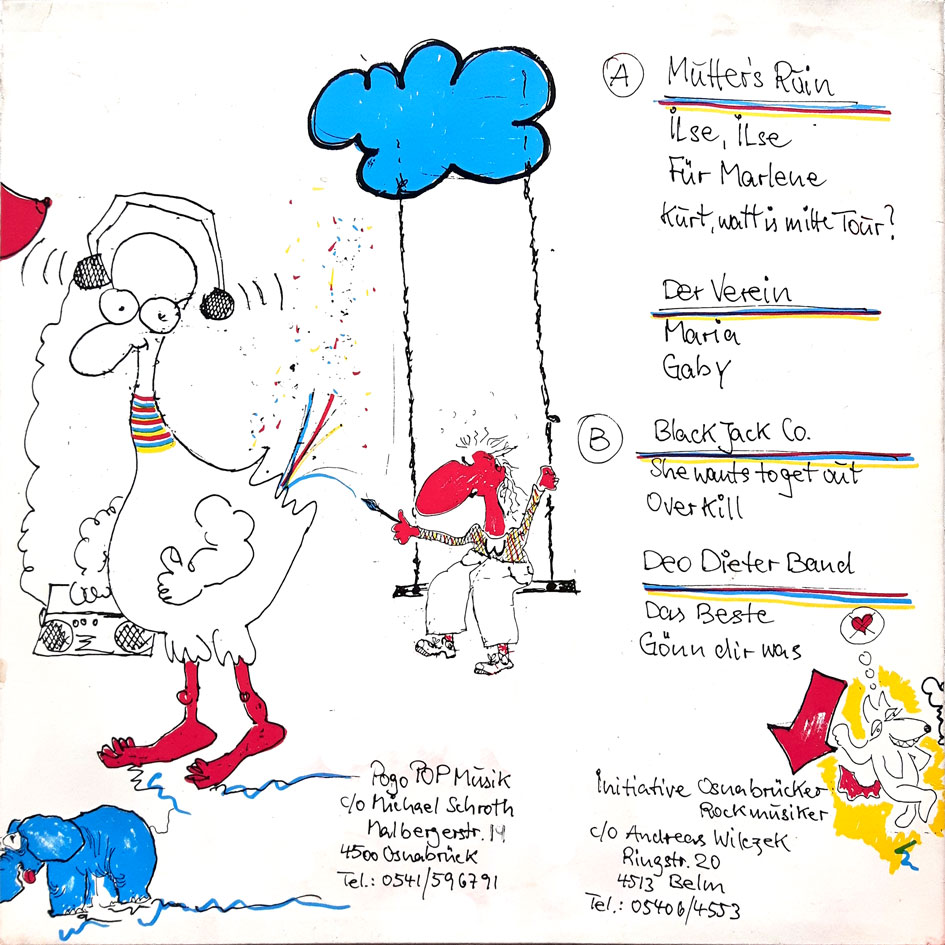 A Mutter's Ruin
Ilse, Ilse
Für Marlene
Kurt, watt is mitte Tour?
Der Verein
Maria
Gaby
B Black Jack Co.
She wants to get out
Overkill
Deo Dieter Band
Das Beste
Gönn dir was
Pogo POP Musik
c/o Michael Schroth
Malbergerstr. 14
4500 Osnabrück
Tel.: 0541/596791
Initiative Osnabrücker
Rockmusiker
c/o Andreas Wilczek
Ringstr. 20
4513 Belm
Tel.: 05406/4553